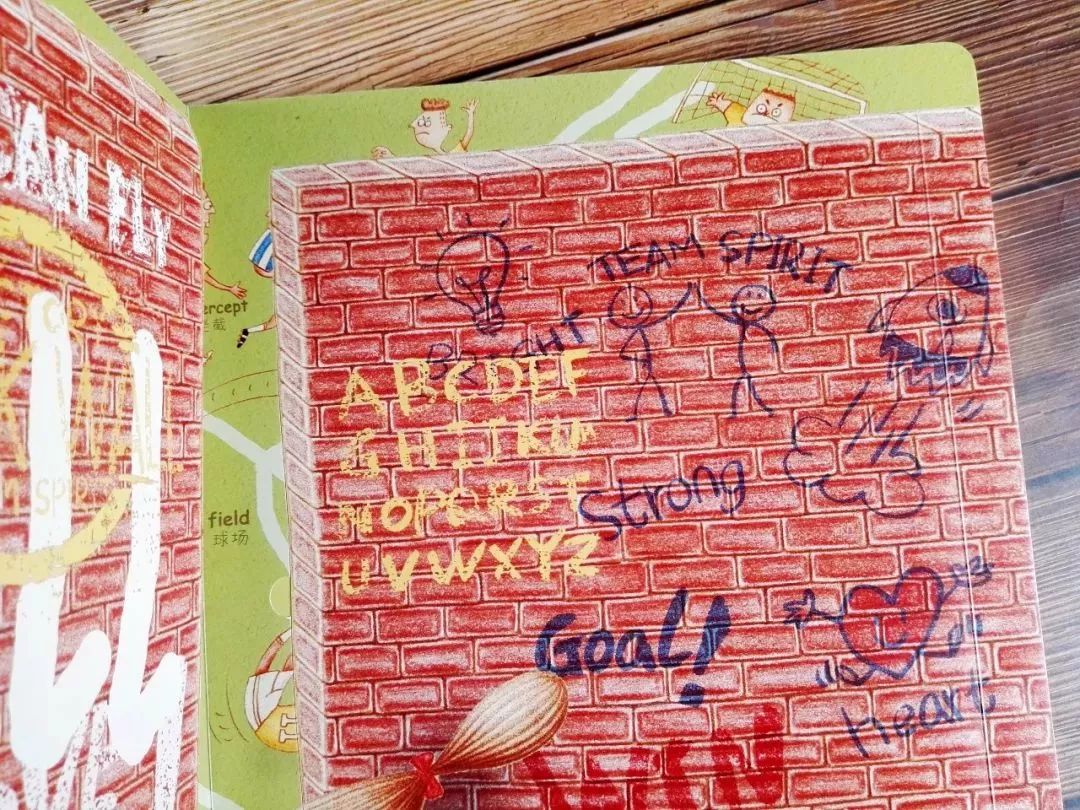 CAN FLY
ercept
截
field
球场
TEAM SPIRIT
BRIGHT
ABCDEF
GHIJKLM
NOPQRST
UVWXYZ
Strong
GoaL!
Heart